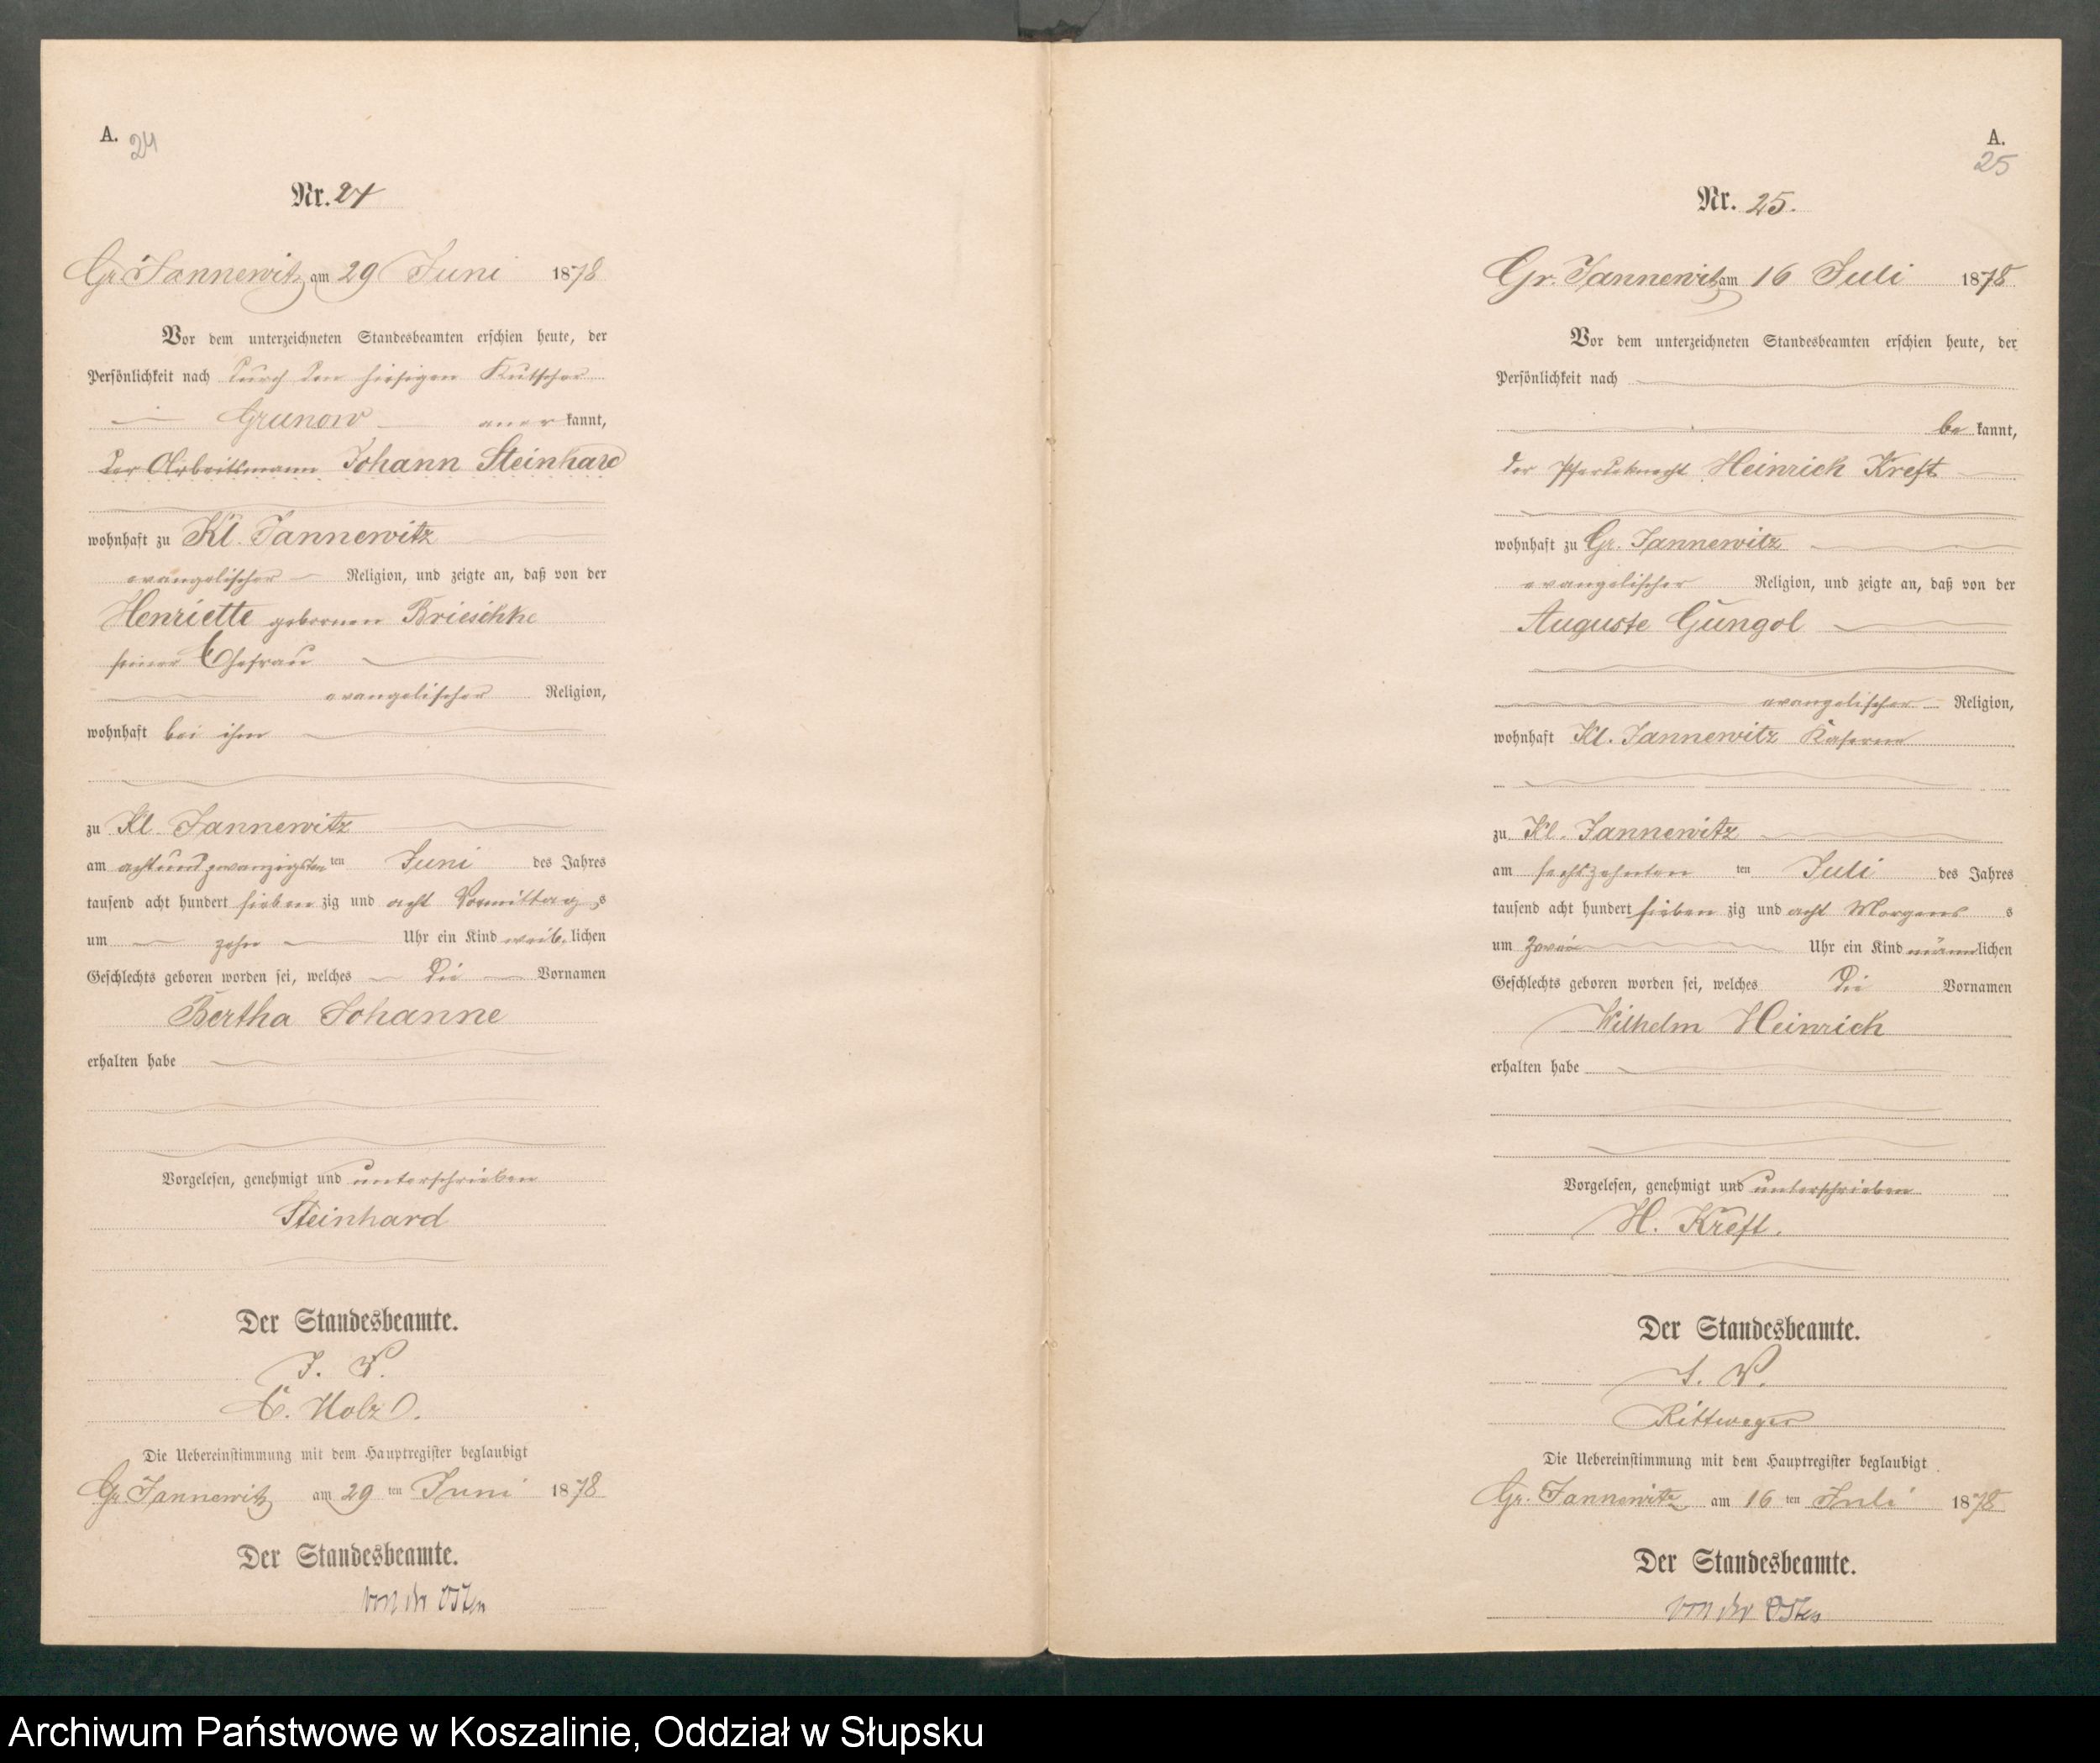 A.
24
Nr. 24
Gr. Jannewitz am 29 Juni 1878
Vor dem unterzeichneten Standesbeamten erschien heute, der
Persönlichkeit nach durch den hiesigen Kutscher
Grunow anerkannt,
der Arbeitsmann Johann Steinhard
wohnhaft zu Kl. Jannewitz
evangelischer Religion, und zeigte an, daß von der
Henriette gebornen Brieschke
seiner Ehefrau
evangelischer Religion,
wohnhaft bei ihm
zu Kl. Jannewitz
am achtundzwanzigsten ten Juni des Jahres
tausend acht hundert siebenzig und acht Vormittags
um zehn Uhr ein Kind weiblichen
Geschlechts geboren worden sei, welches die Vornamen
Bertha Johanne
erhalten habe
Vorgelesen, genehmigt und unterschrieben
Steinhard
Der Standesbeamte.
J. V.
Die Uebereinstimmung mit dem Hauptregister beglaubigt
Gr. Jannewitz am 29 ten Juni 1878
Der Standesbeamte.
von der Osten
A.
25
Nr. 25.
Gr. Jannewitz am 16 Juli 1878
Vor dem unterzeichneten Standesbeamten erschien heute, der
Persönlichkeit nach
bekannt,
der Pferdeknecht Heinrich Kreft
wohnhaft zu Gr. Jannewitz
evangelischer Religion, und zeigte an, daß von der
Auguste Gungol
evangelischer Religion,
wohnhaft Kl. Jannewitz Kaserne
zu Kl. Jannewitz
am sechszehnten ten Juli des Jahres
tausend acht hundert siebenzig und acht Morgens s
um zwei Uhr ein Kind männlichen
Geschlechts geboren worden sei, welches die Vornamen
Wilhelm Heinrich
erhalten habe
Vorgelesen, genehmigt und unterschrieben
H. Kreft.
Der Standesbeamte.
J. V.
Rittweger
Die Uebereinstimmung mit dem Hauptregister beglaubigt
Gr. Jannewitz am 16 ten Juli 1878
Der Standesbeamte.
von der Osten
Archiwum Państwowe w Koszalinie, Oddział w Słupsku